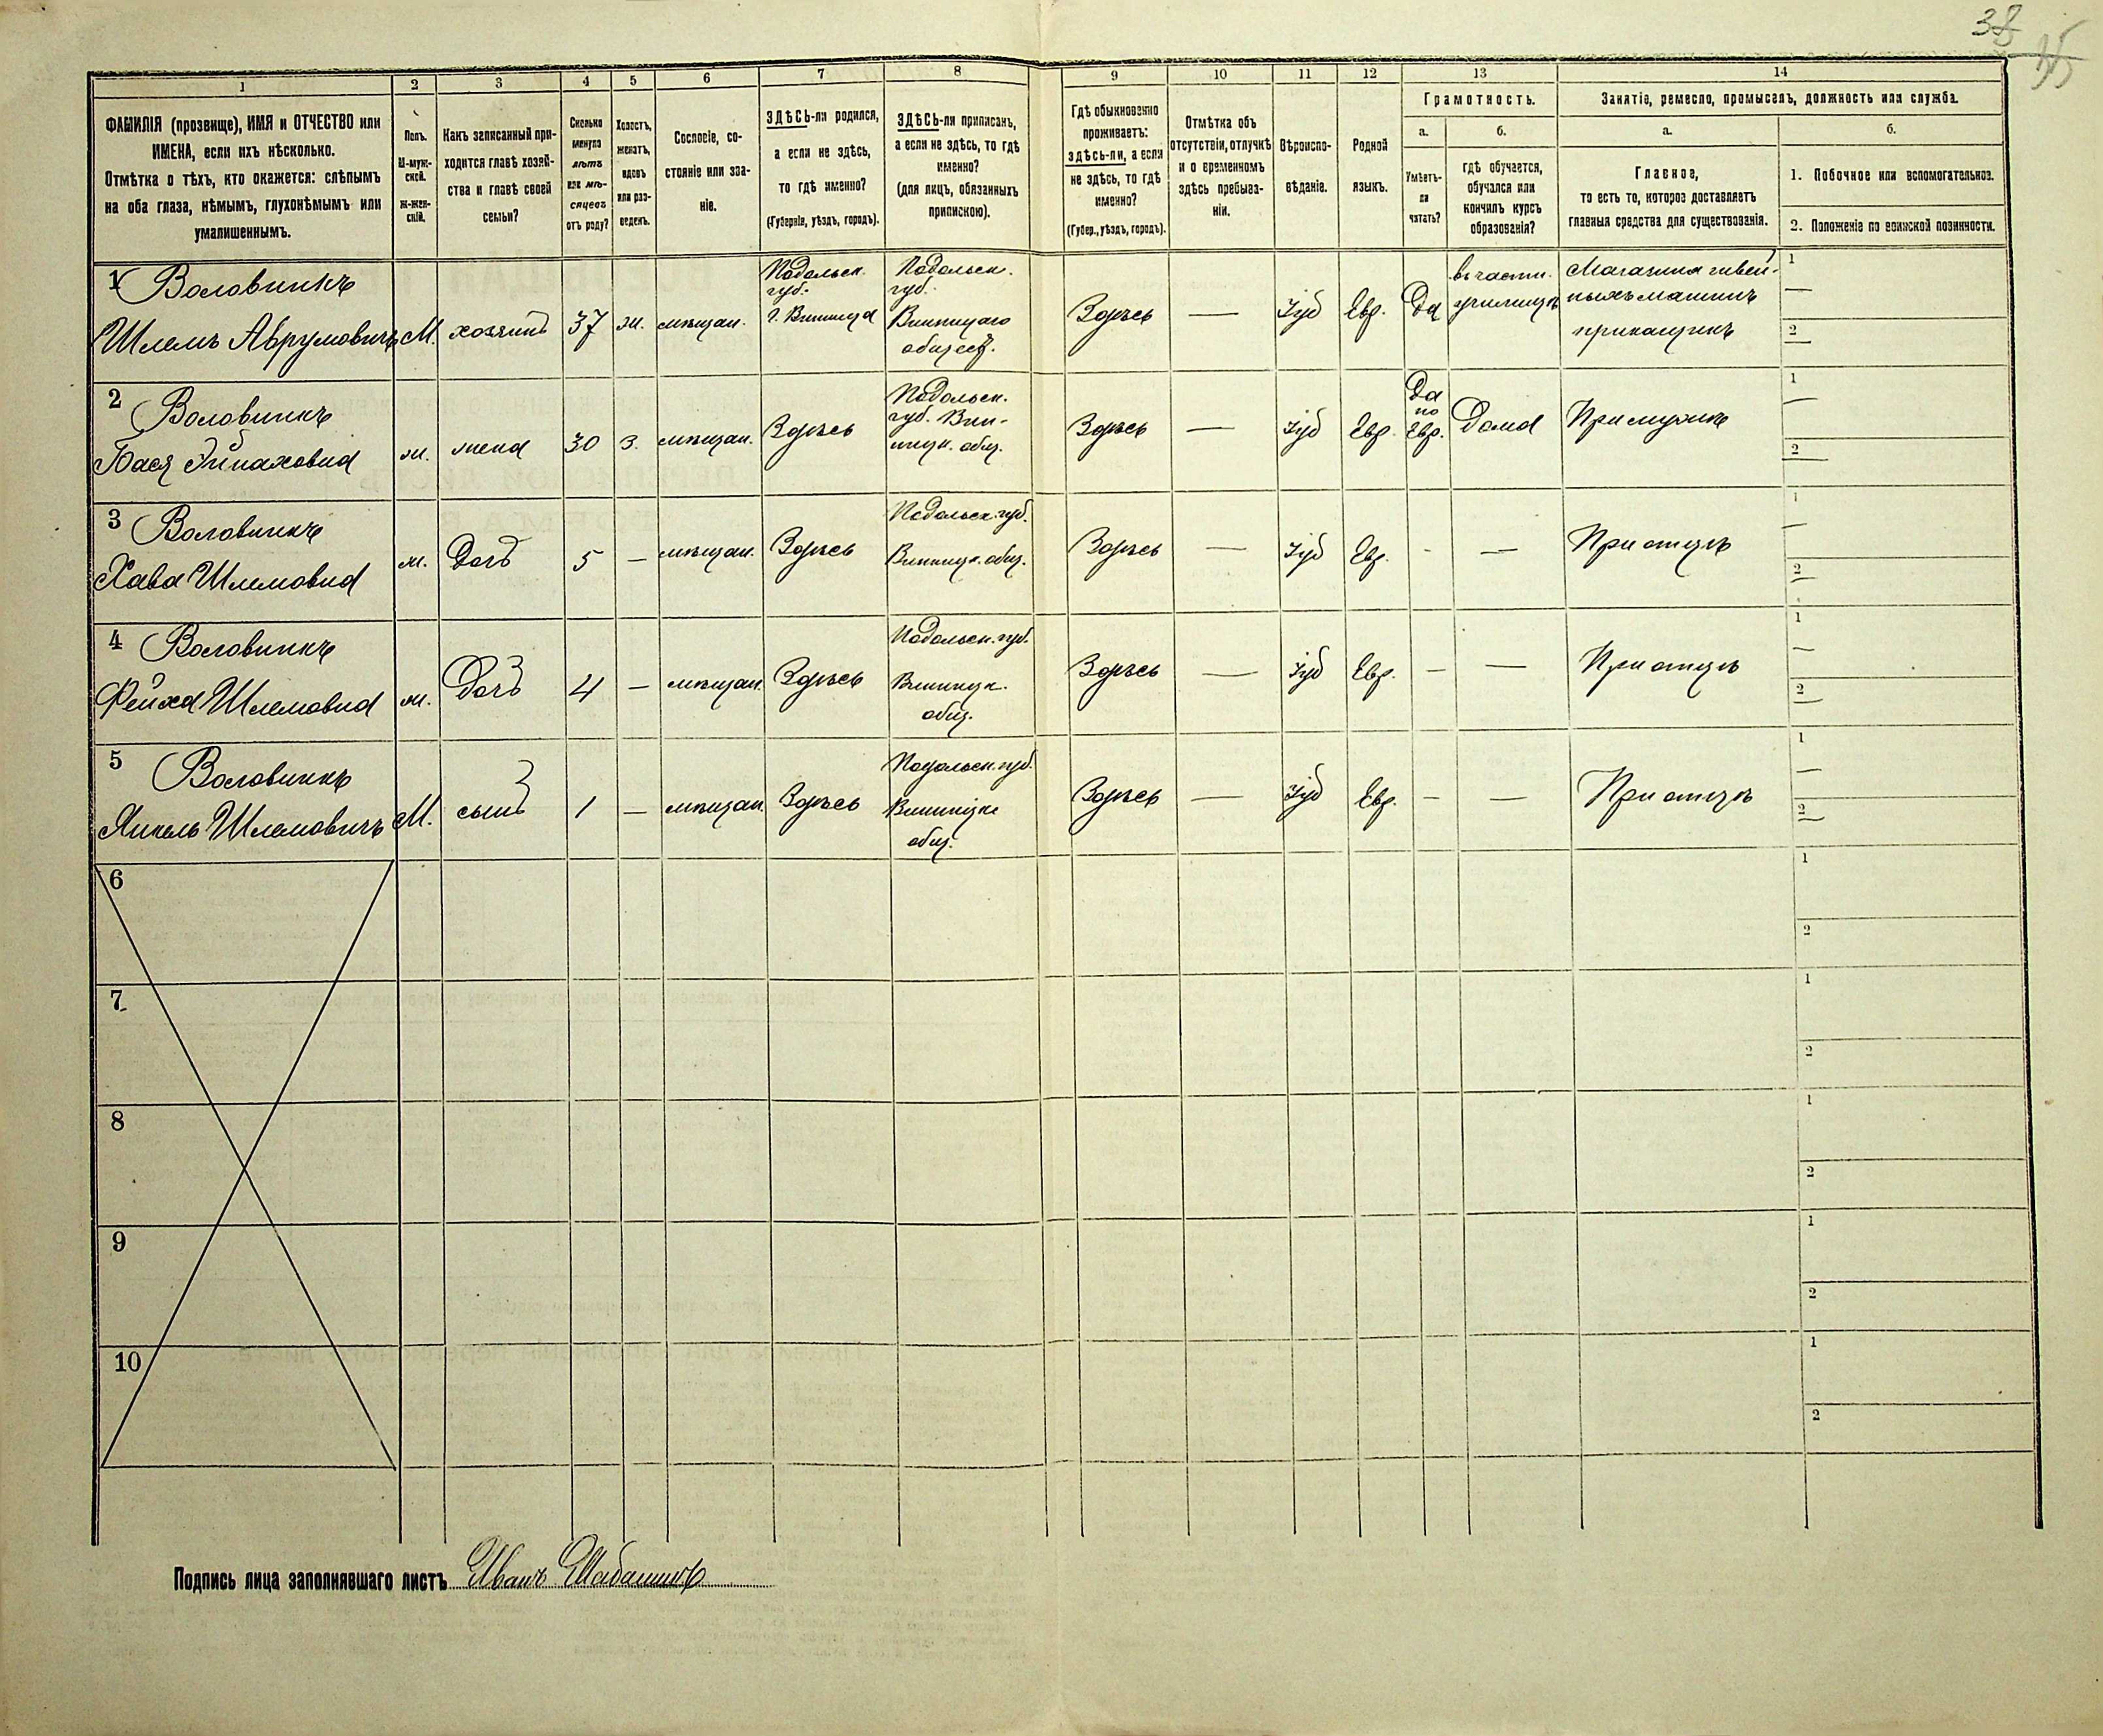 38
35
1 2 3 4 5 6 7 8 9 10 11 12 13 14
ФАМИЛІЯ (прозвище), ИМЯ и ОТЧЕСТВО или
ИМЕНА, если ихъ нѣсколько.
Отмѣтка о тѣхъ, кто окажется: слѣпымъ
на оба глаза, нѣмымъ, глухонѣмымъ или
умалишеннымъ.
Полъ.
М-муж-
ской.
ж-жен-
скій.
Какъ записанный при-
ходится главѣ хозяй-
ства и главѣ своей
семьи?
Сколько
минуло
лѣтъ
или мѣ-
сяцевъ
отъ роду?
Холостъ,
женатъ,
вдовъ
или раз-
веденъ.
Сословіе, со-
стояніе или зва-
ніе.
ЗДѢСЬ-ли родился,
а если не здѣсь,
то гдѣ именно?
(Губернія, уѣздъ, городъ).
ЗДѢСЬ-ли приписанъ,
а если не здѣсь, то гдѣ
именно?
(для лицъ, обязанныхъ
припискою).
Гдѣ обыкновенно
проживаетъ:
здѣсь-ли, а если
не здѣсь, то гдѣ
именно?
(Губер., уѣздъ, городъ).
Отмѣтка объ
отсутствіи, отлучкѣ
и о временномъ
здѣсь пребыва-
ніи.
Вѣроиспо-
вѣданіе.
Родной
языкъ.
Грамотность.
а.
Умѣетъ-
ли
читать?
б.
гдѣ обучается,
обучался или
кончилъ курсъ
образованія?
Занятіе, ремесло, промыселъ, должность или служба.
а.
Главное,
то есть то, которое доставляетъ
главныя средства для существованія.
б.
1. Побочное или вспомогательное.
2. Положеніе по воинской повинности.
1 Воловникъ
Шлемъ Аврумовичъ
М.
хозяинъ
37
ж.
мѣщан.
Подольск.
губ.
г. Винница
Подольск.
губ.
Винницаго
общест.
Здѣсь
—
Іуд
Евр.
Да
въ частн.
училищѣ
Магазина швей-
ныхъ машинъ
прикащикъ
1
—
2
—
2 Воловникъ
Бася
ж.
жена
30
з.
мѣщан.
Здѣсь
Подольск.
губ. Вин-
ницк. общ.
Здѣсь
—
Іуд
Евр.
Да
по
Евр.
Дома
При мужѣ
1
—
2
—
3 Воловникъ
Хава Шлемовна
ж.
Доч
5
—
мѣщан.
Здѣсь
Подольск. губ.
Винницк. общ.
Здѣсь
—
Іуд
Евр.
-
—
При отцѣ
1
—
2
—
4 Воловникъ
Фейха Шлемовна
ж.
Доч
4
—
мѣщан.
Здѣсь
Подольск. губ.
Винницк.
общ.
Здѣсь
—
Іуд
Евр.
—
—
При отцѣ
1
—
2
—
5 Воловникъ
Янкель Шлемовичъ
М.
сынъ
1
—
мѣщан.
Здѣсь
Подольск. губ.
Винницк
общ.
Здѣсь
—
Іуд
Евр.
—
—
При отцѣ
1
—
2
—
6
1
2
7
1
2
8
1
2
9
1
2
10
1
2
Подпись лица заполнявшаго листъ Иванъ